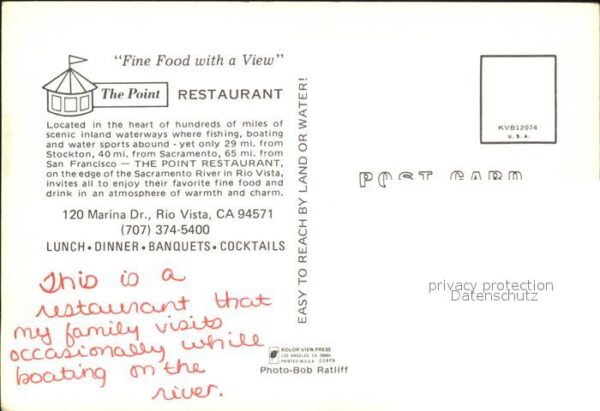 "Fine Food with a View"
The Point RESTAURANT
Located in the heart of hundreds of miles of
scenic inland waterways where fishing, boating
and water sports abound - yet only 29 mi. from
Stockton, 40 mi. from Sacramento, 65 mi. from
San Francisco — THE POINT RESTAURANT,
on the edge of the Sacramento River in Rio Vista,
invites all to enjoy their favorite fine food and
drink in an atmosphere of warmth and charm.
120 Marina Dr., Rio Vista, CA 94571
(707) 374-5400
LUNCH • DINNER • BANQUETS • COCKTAILS
This is a
restaurant that
my family visits
occasionally while
boating on the
river.
EASY TO REACH BY LAND OR WATER!
KOLOR VIEW PRESS
LOS ANGELES, CA
PRINTED IN U.S.A.
Photo-Bob Ratliff
KVB12074
U. S. A.
POST CARD
privacy protection
Datenschutz